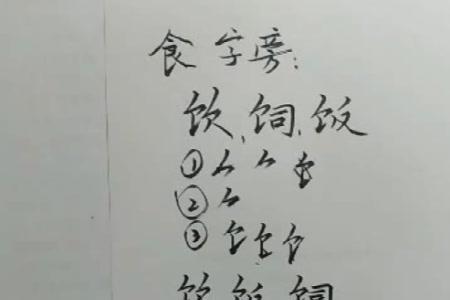 食字旁:
饮、饲、饭
①𠂉 𠂉 饣
②𠂉
③饣饣饣
饮 饭 饲